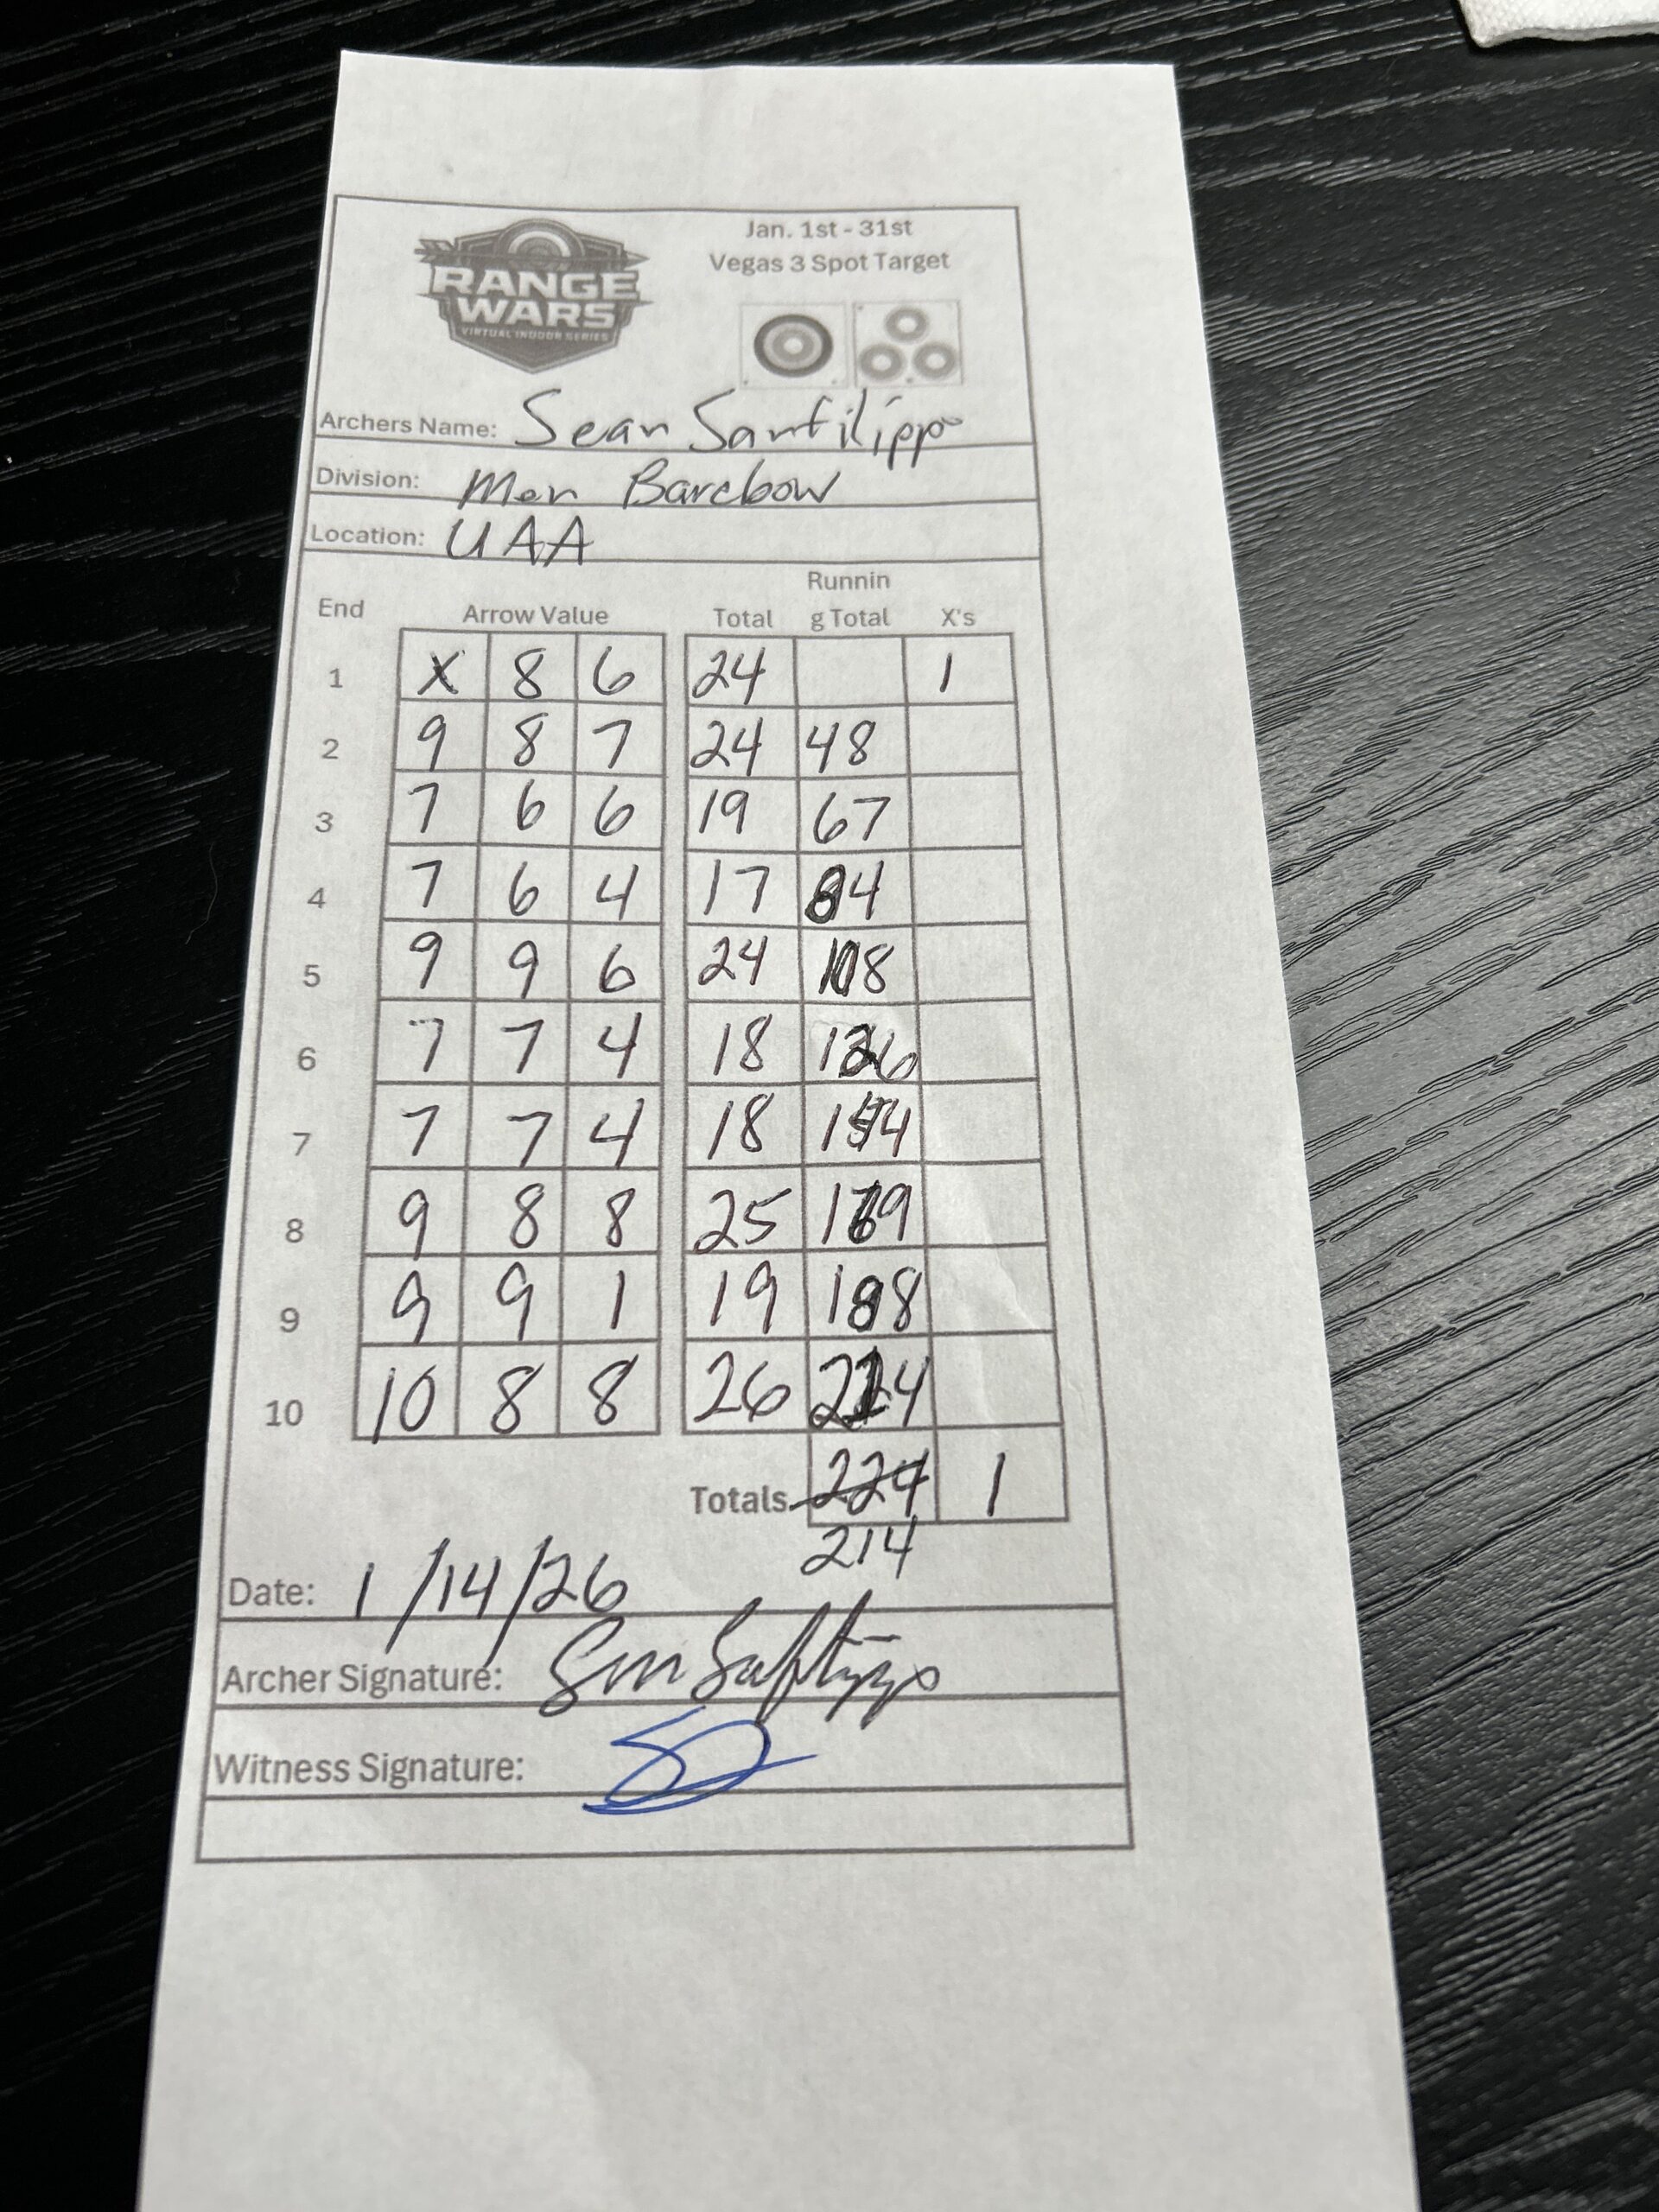 Jan. 1st - 31st
Vegas 3 Spot Target
RANGE
WARS
VIRTUAL INDOOR SERIES
Archers Name: Sean Sanfilippo
Division: Men Barebow
Location: UAA
Runnin
End Arrow Value Total g Total X's
1 X 8 6 24 1
2 9 8 7 24 48
3 7 6 6 19 67
4 7 6 4 17 84
5 9 9 6 24 108
6 7 7 4 18 126
7 7 7 4 18 144
8 9 8 8 25 169
9 9 9 1 19 188
10 10 8 8 26 214
Totals 224 1
214
Date: 1/14/26
Archer Signature: 
Witness Signature: